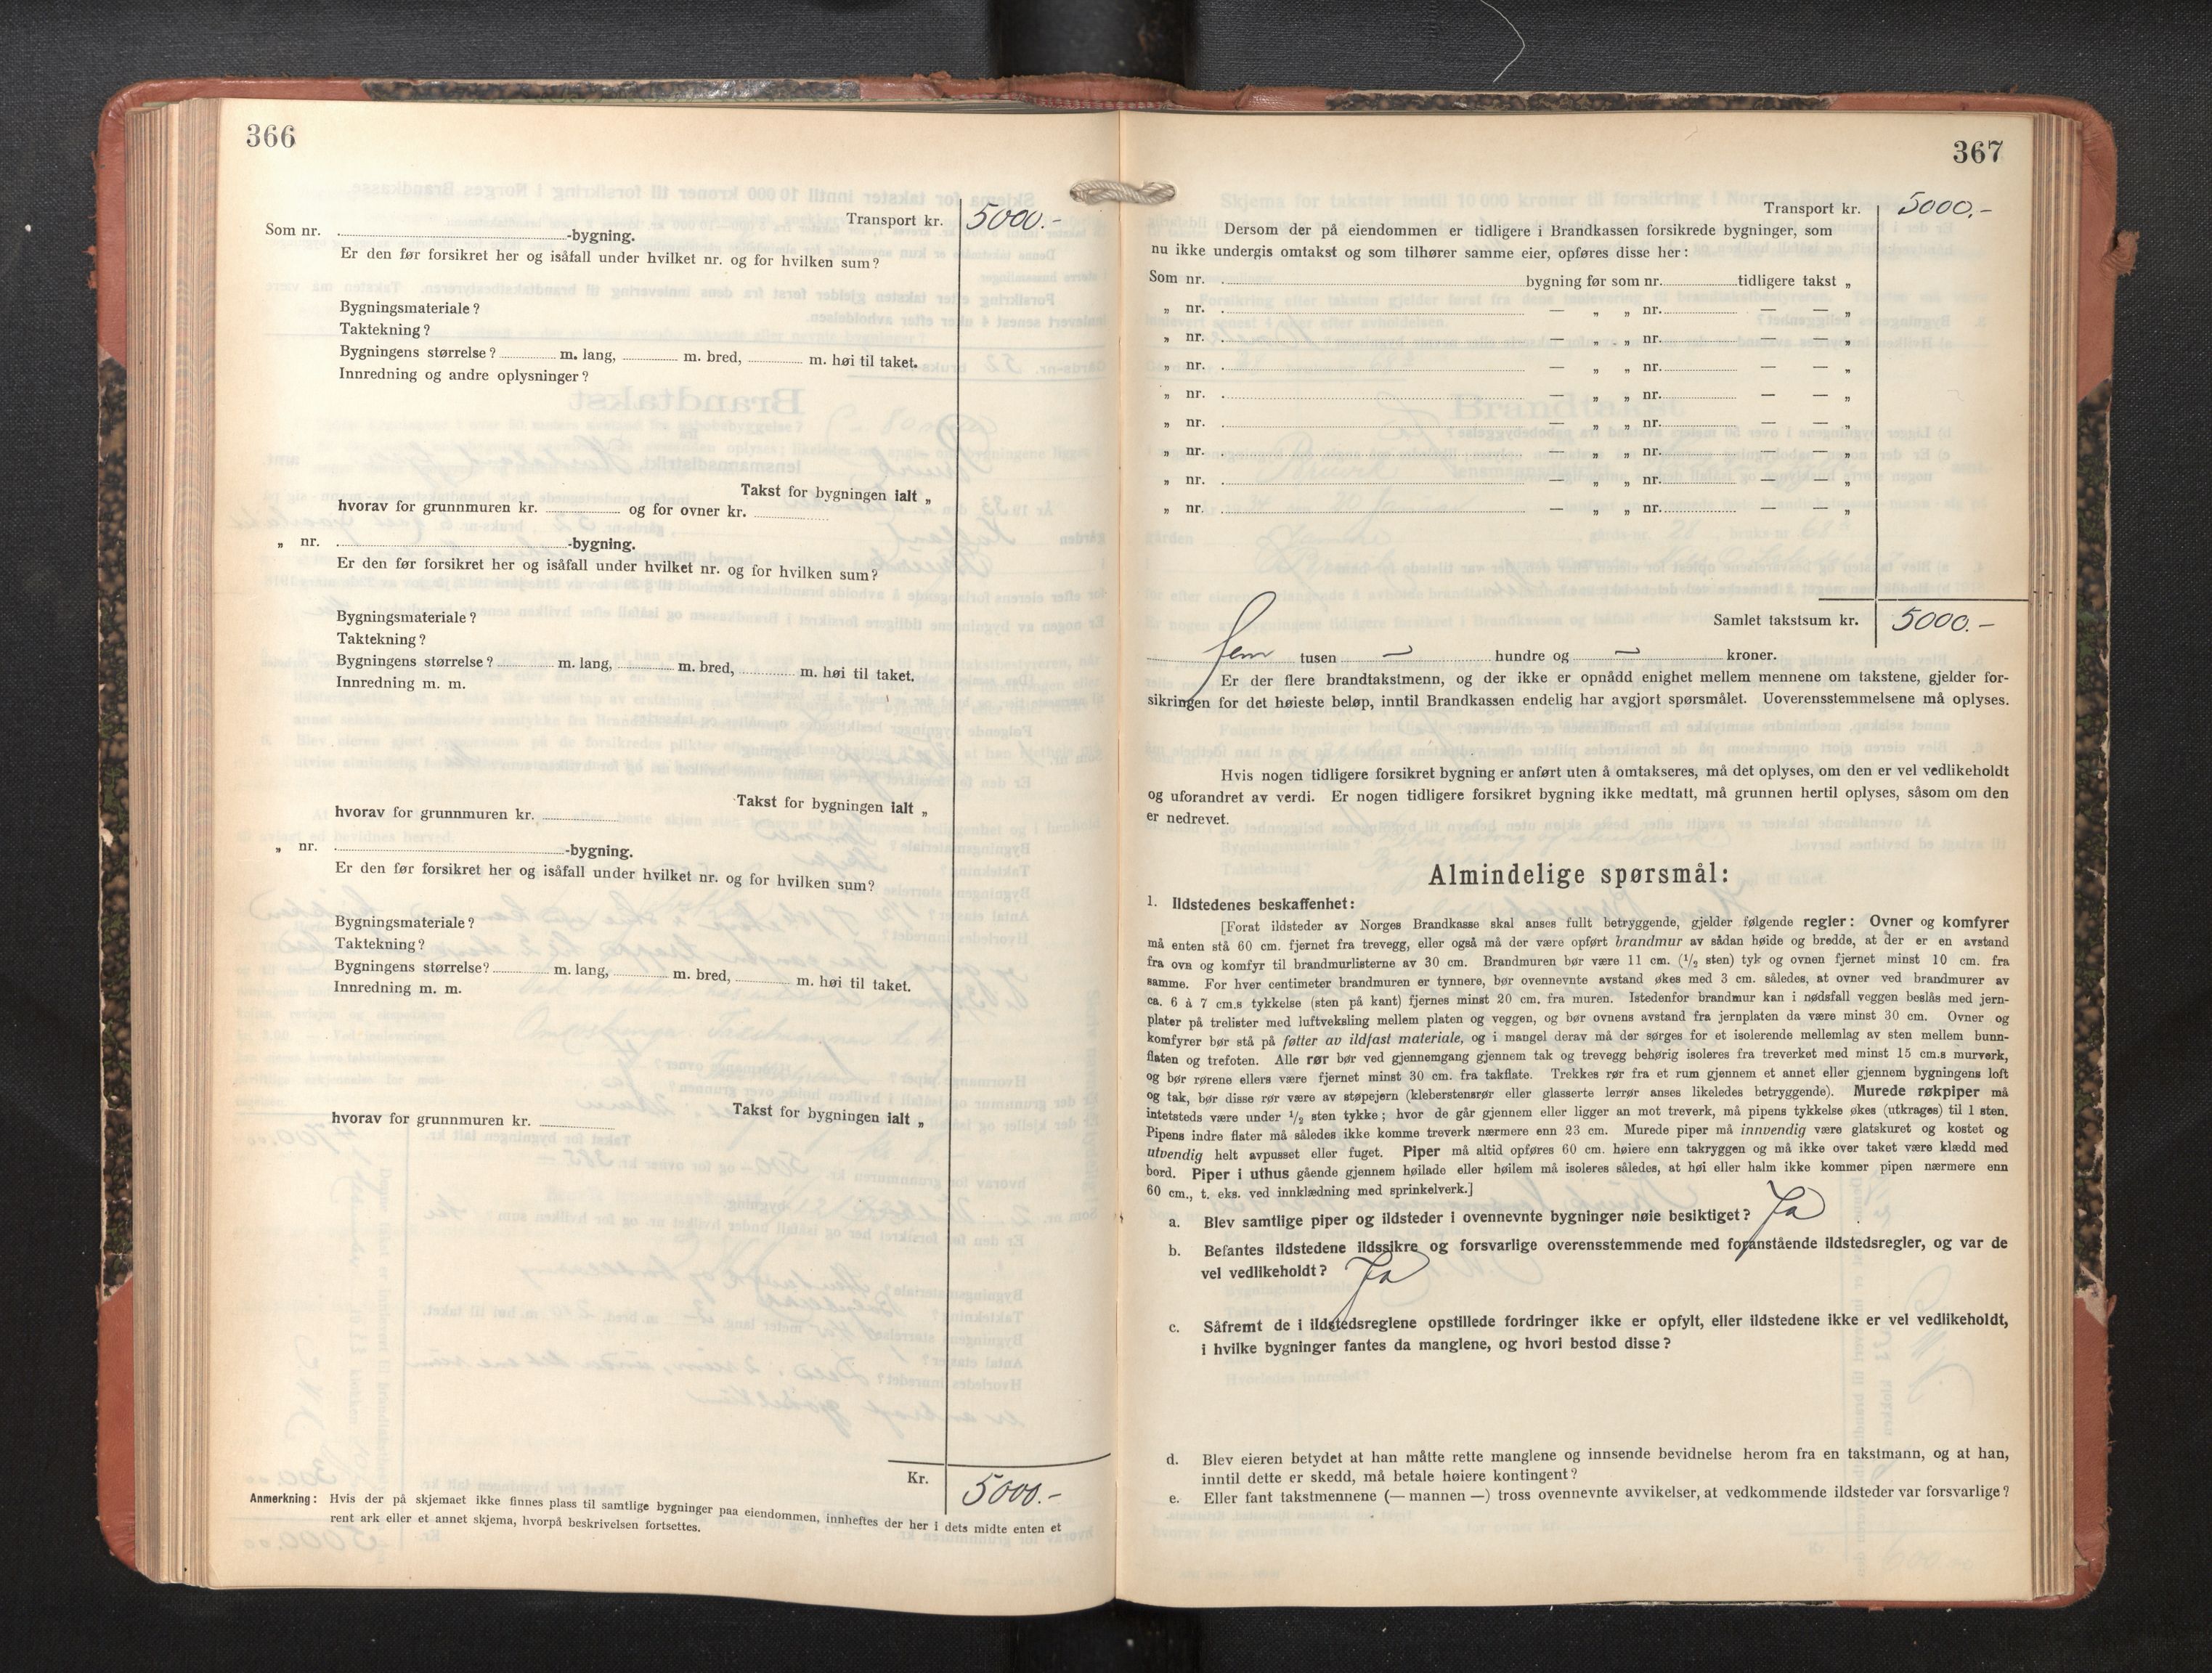 366
Transport kr. 5000.-
Som nr. -bygning.
Er den før forsikret her og isåfall under hvilket nr. og for hvilken sum?
Bygningsmateriale?
Taktekning?
Bygningens størrelse? m. lang, m. bred, m. høi til taket.
Innredning og andre oplysninger?
Takst for bygningen ialt „
hvorav for grunnmuren kr. og for ovner kr.
„ nr. -bygning.
Er den før forsikret her og isåfall under hvilket nr. og for hvilken sum?
Bygningsmateriale?
Taktekning?
Bygningens størrelse? m. lang, m. bred, m. høi til taket.
Innredning m. m.
Takst for bygningen ialt „
hvorav for grunnmuren kr.
„ nr. -bygning.
Er den før forsikret her og isåfall under hvilket nr. og for hvilken sum?
Bygningsmateriale?
Taktekning?
Bygningens størrelse? m. lang, m. bred, m. høi til taket.
Innredning m. m.
Takst for bygningen ialt „
hvorav for grunnmuren kr.
Kr. 5000.-
Anmerkning: Hvis der på skjemaet ikke finnes plass til samtlige bygninger paa eiendommen, innheftes der her i dets midte enten et
rent ark eller et annet skjema, hvorpå beskrivelsen fortsettes.
367
Transport kr. 5000.-
Dersom der på eiendommen er tidligere i Brandkassen forsikrede bygninger, som
nu ikke undergis omtakst og som tilhører samme eier, opføres disse her:
Som nr. bygning før som nr. tidligere takst „
„ nr. — „ „ nr. — — „
„ nr. — „ „ nr. — — „
„ nr. — „ „ nr. — — „
„ nr. — „ „ nr. — — „
„ nr. — „ „ nr. — — „
„ nr. — „ „ nr. — — „
„ nr. — „ „ nr. — — „
„ nr. — „ „ nr. — — „
Samlet takstsum kr. 5000.-
fem tusen — hundre og — kroner.
Er der flere brandtakstmenn, og der ikke er opnådd enighet mellem mennene om takstene, gjelder for-
sikringen for det høieste beløp, inntil Brandkassen endelig har avgjort spørsmålet. Uoverensstemmelsene må oplyses.
Hvis nogen tidligere forsikret bygning er anført uten å omtakseres, må det oplyses, om den er vel vedlikeholdt
og uforandret av verdi. Er nogen tidligere forsikret bygning ikke medtatt, må grunnen hertil oplyses, såsom om den
er nedrevet.
Almindelige spørsmål:
1. Ildstedenes beskaffenhet:
[Forat ildsteder av Norges Brandkasse skal anses fullt betryggende, gjelder følgende regler: Ovner og komfyrer
må enten stå 60 cm. fjernet fra trevegg, eller også må der være opført brandmur av sådan høide og bredde, at der er en avstand
fra ovn og komfyr til brandmurlisterne av 30 cm. Brandmuren bør være 11 cm. (1/2 sten) tyk og ovnen fjernet minst 10 cm. fra
samme. For hver centimeter brandmuren er tynnere, bør ovennevnte avstand økes med 3 cm. således, at ovner ved brandmurer av
ca. 6 à 7 cm.s tykkelse (sten på kant) fjernes minst 20 cm. fra muren. Istedenfor brandmur kan i nødsfall veggen beslås med jern-
plater på trelister med luftveksling mellem platen og veggen, og bør ovnens avstand fra jernplaten da være minst 30 cm. Ovner og
komfyrer bør stå på føtter av ildfast materiale, og i mangel derav må der sørges for et isolerende mellemlag av sten mellem bunn-
flaten og trefoten. Alle rør bør ved gjennemgang gjennem tak og trevegg behørig isoleres fra treverket med minst 15 cm.s murverk,
og bør rørene ellers være fjernet minst 30 cm. fra takflate. Trekkes rør fra et rum gjennem et annet eller gjennem bygningens loft
og tak, bør disse rør være av støpejern (kleberstensrør eller glasserte lerrør anses likeledes betryggende). Murede røkpiper må
intetsteds være under 1/2 sten tykke; hvor de går gjennem eller ligger an mot treverk, må pipens tykkelse økes (utkrages) til 1 sten.
Pipens indre flater må således ikke komme treverk nærmere enn 23 cm. Murede piper må innvendig være glatskuret og kostet og
utvendig helt avpusset eller fuget. Piper må altid opføres 60 cm. høiere enn takryggen og må ikke over taket være klædd med
bord. Piper i uthus gående gjennem høilade eller høilem må isoleres således, at høi eller halm ikke kommer pipen nærmere enn
60 cm., t. eks. ved innklædning med sprinkelverk.]
a. Blev samtlige piper og ildsteder i ovennevnte bygninger nøie besiktiget? Ja
b. Befantes ildstedene ildssikre og forsvarlige overensstemmende med foranstående ildstedsregler, og var de
vel vedlikeholdt? Ja
c. Såfremt de i ildstedsreglene opstillede fordringer ikke er opfylt, eller ildstedene ikke er vel vedlikeholdt,
i hvilke bygninger fantes da manglene, og hvori bestod disse?
d. Blev eieren betydet at han måtte rette manglene og innsende bevidnelse herom fra en takstmann, og at han,
inntil dette er skedd, må betale høiere kontingent?
e. Eller fant takstmennene (— mannen —) tross ovennevnte avvikelser, at vedkommende ildsteder var forsvarlige?